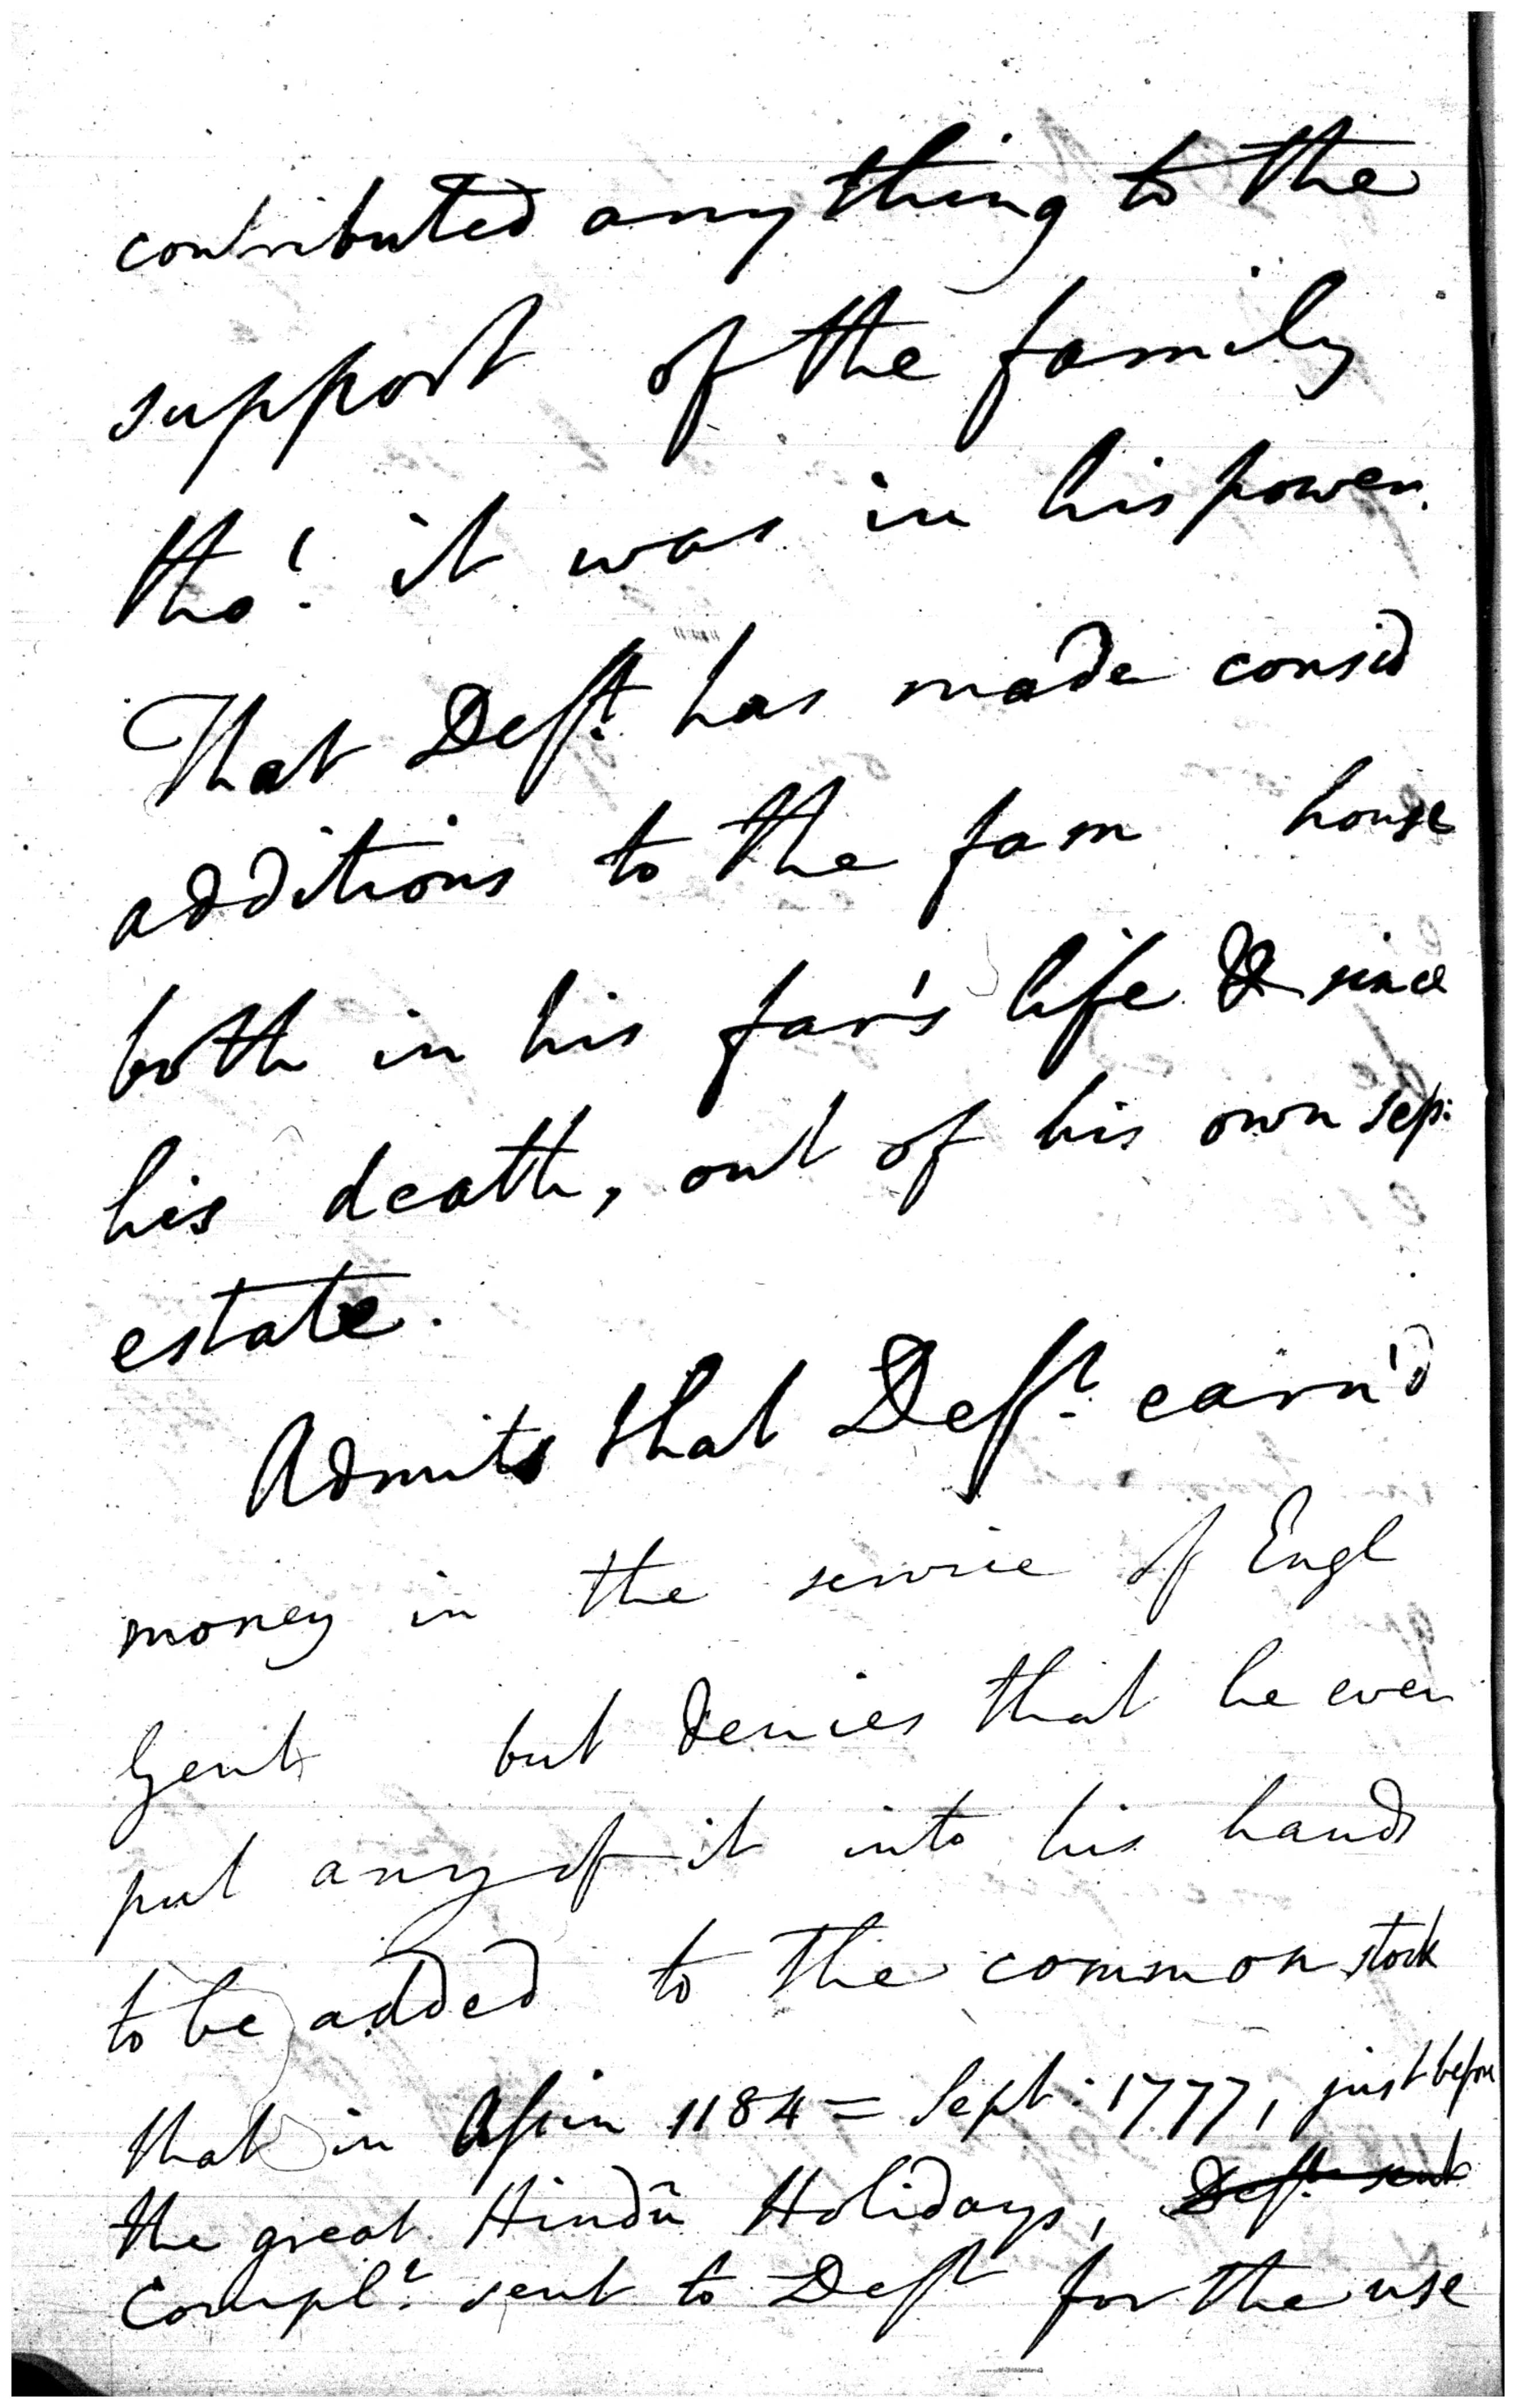 contributed anything to the
support of the family
tho' it was in his power.
That Deft. has made consid
additions to the fam house
both in his far's life & since
his death, out of his own sep:
estate.
Admits that Deft. earn'd
money in the service of Engl
Gent but denies that he ever
put any of it into his hands
to be added to the common stock
that in Assin 1184 = Sept: 1777, just before
the great Hindû Holidays, Deft. sent
Complt. sent to Deft for the use